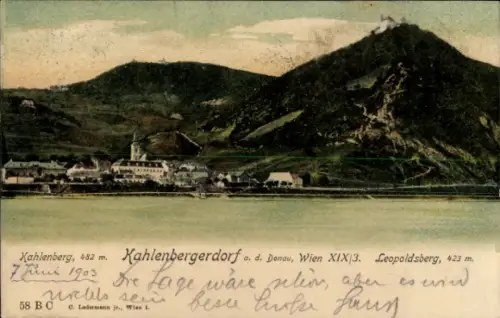 Kahlenberg, 482 m. Kahlenbergerdorf a. d. Donau, Wien XIX/3. Leopoldsberg, 423 m.
7 Juni 1903 Die Lage wäre schon, aber es wird
nichts sein beste
58 B C C. Ledermann jr., Wien I.